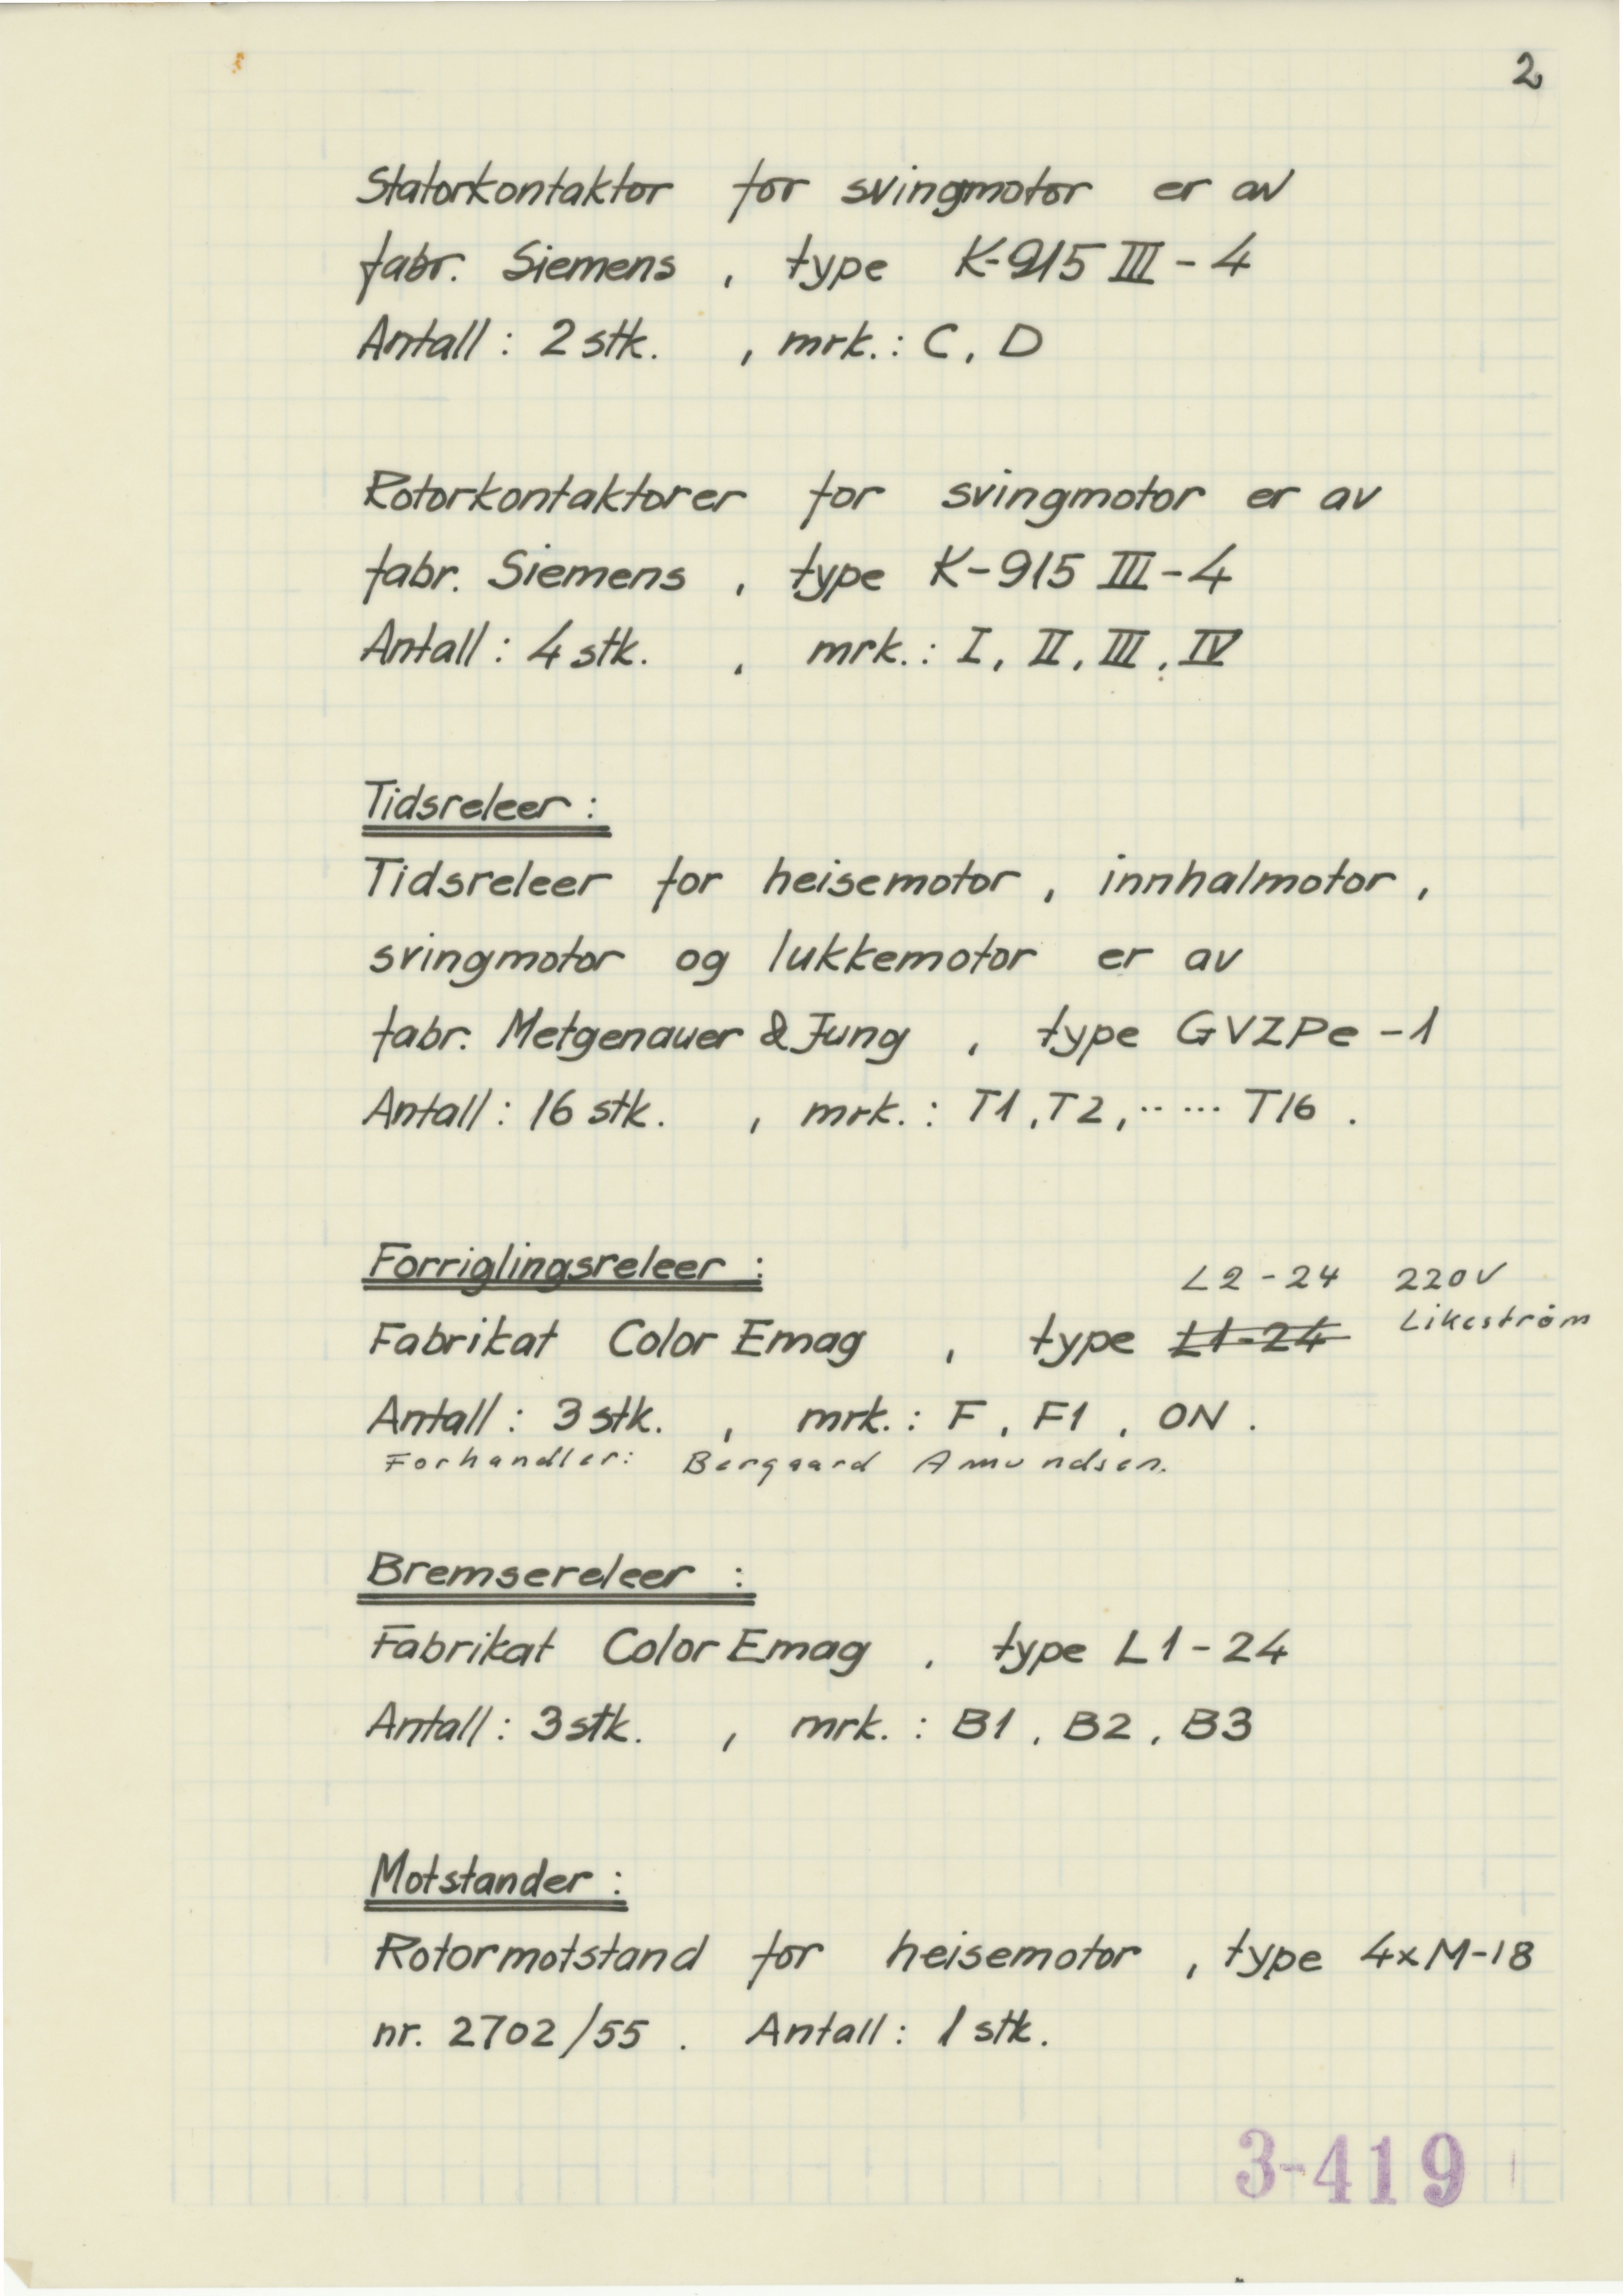 2
Statorkontaktor for svingmotor er av
fabr. Siemens , type K-915 III - 4
Antall : 2 stk. , mrk. : C , D
Rotorkontaktorer for svingmotor er av
fabr. Siemens , type K-915 III-4
Antall : 4 stk. , mrk. : I , II , III , IV
Tidsreleer :
Tidsreleer for heisemotor , innhalmotor ,
svingmotor og lukkemotor er av
fabr. Metgenauer & Jung , type GVZPe -1
Antall : 16 stk. , mrk. : T1 , T2 , ..... T16 .
Forriglingsreleer :
L2 - 24 220V
Likestrøm
Fabrikat Color Emag , type L1-24
Antall : 3 stk. , mrk. : F , F1 , ON .
Forhandler: Bergaard Amundsen.
Bremsereleer :
Fabrikat Color Emag , type L1-24
Antall : 3 stk. , mrk. : B1 , B2 , B3
Motstander :
Rotormotstand for heisemotor , type 4xM-18
nr. 2702/55 . Antall : 1 stk.
3-419